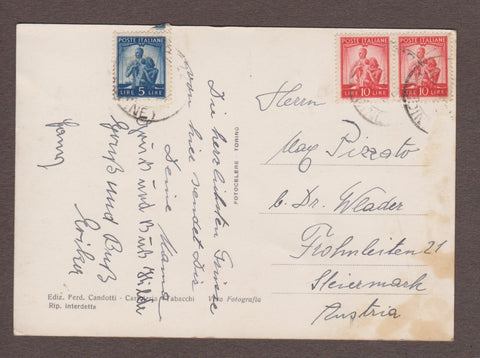 POSTE ITALIANE
LIRE 5 LIRE
POSTE ITALIANE
LIRE 10 LIRE
POSTE ITALIANE
LIRE 10 LIRE
Die herzlichsten Grüsse
von hier sendet Dir
Deine Mama
Gruß und Buß Hilde
Gruß und Buß
Erika
FOTOCELERE TORINO
Herrn
Max Pizzato
b. Dr. Wlader
Frohnleiten 21
Steiermark
Austria
Ediz. Ferd. Candotti - Tabacchi
Rip. interdetta
Vera Fotografia